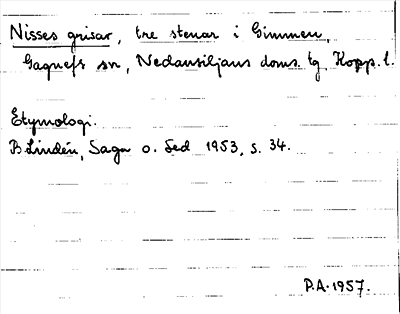 Nisses grisar, tre stenar i Gimmen,
Gagnefs sn, Nedansiljans doms. tg Kopp. l.
Etymologi.
B Lindén, Saga o. Sed 1953, s. 34.
P.A. 1957.